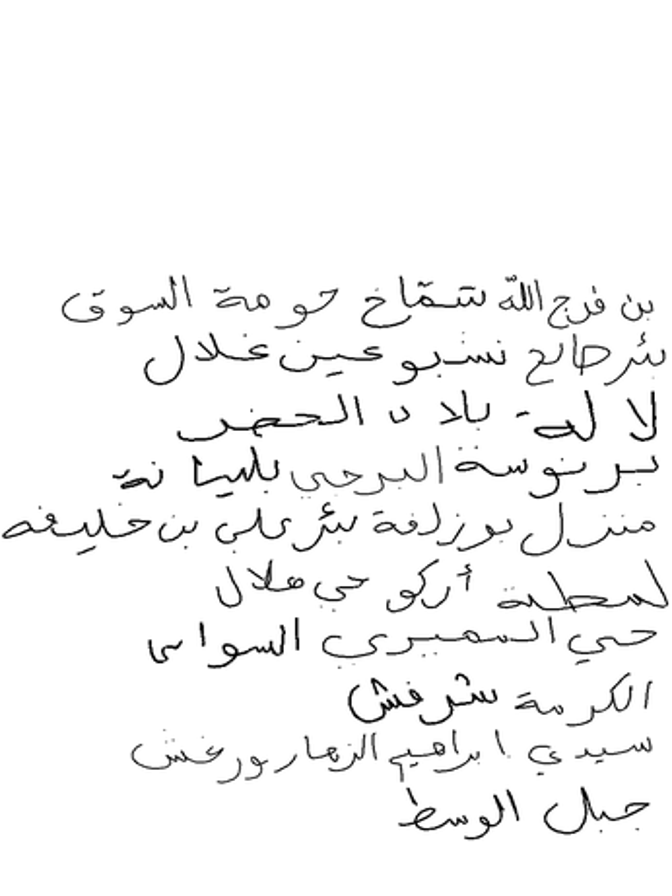 بن فرج الله شمّاخ حومة السوق
بئر صالح نسبو عين غلال
لالة بلاد الحضر
برنوسة البرجي بليانة
منزل بوزلفة بئر علي بن خليفه
لمطة أركو حي هلال
حي السميري السواسي
الكرمة شرفش
سيدي ابراهيم الزهار ورغش
جبل الوسط